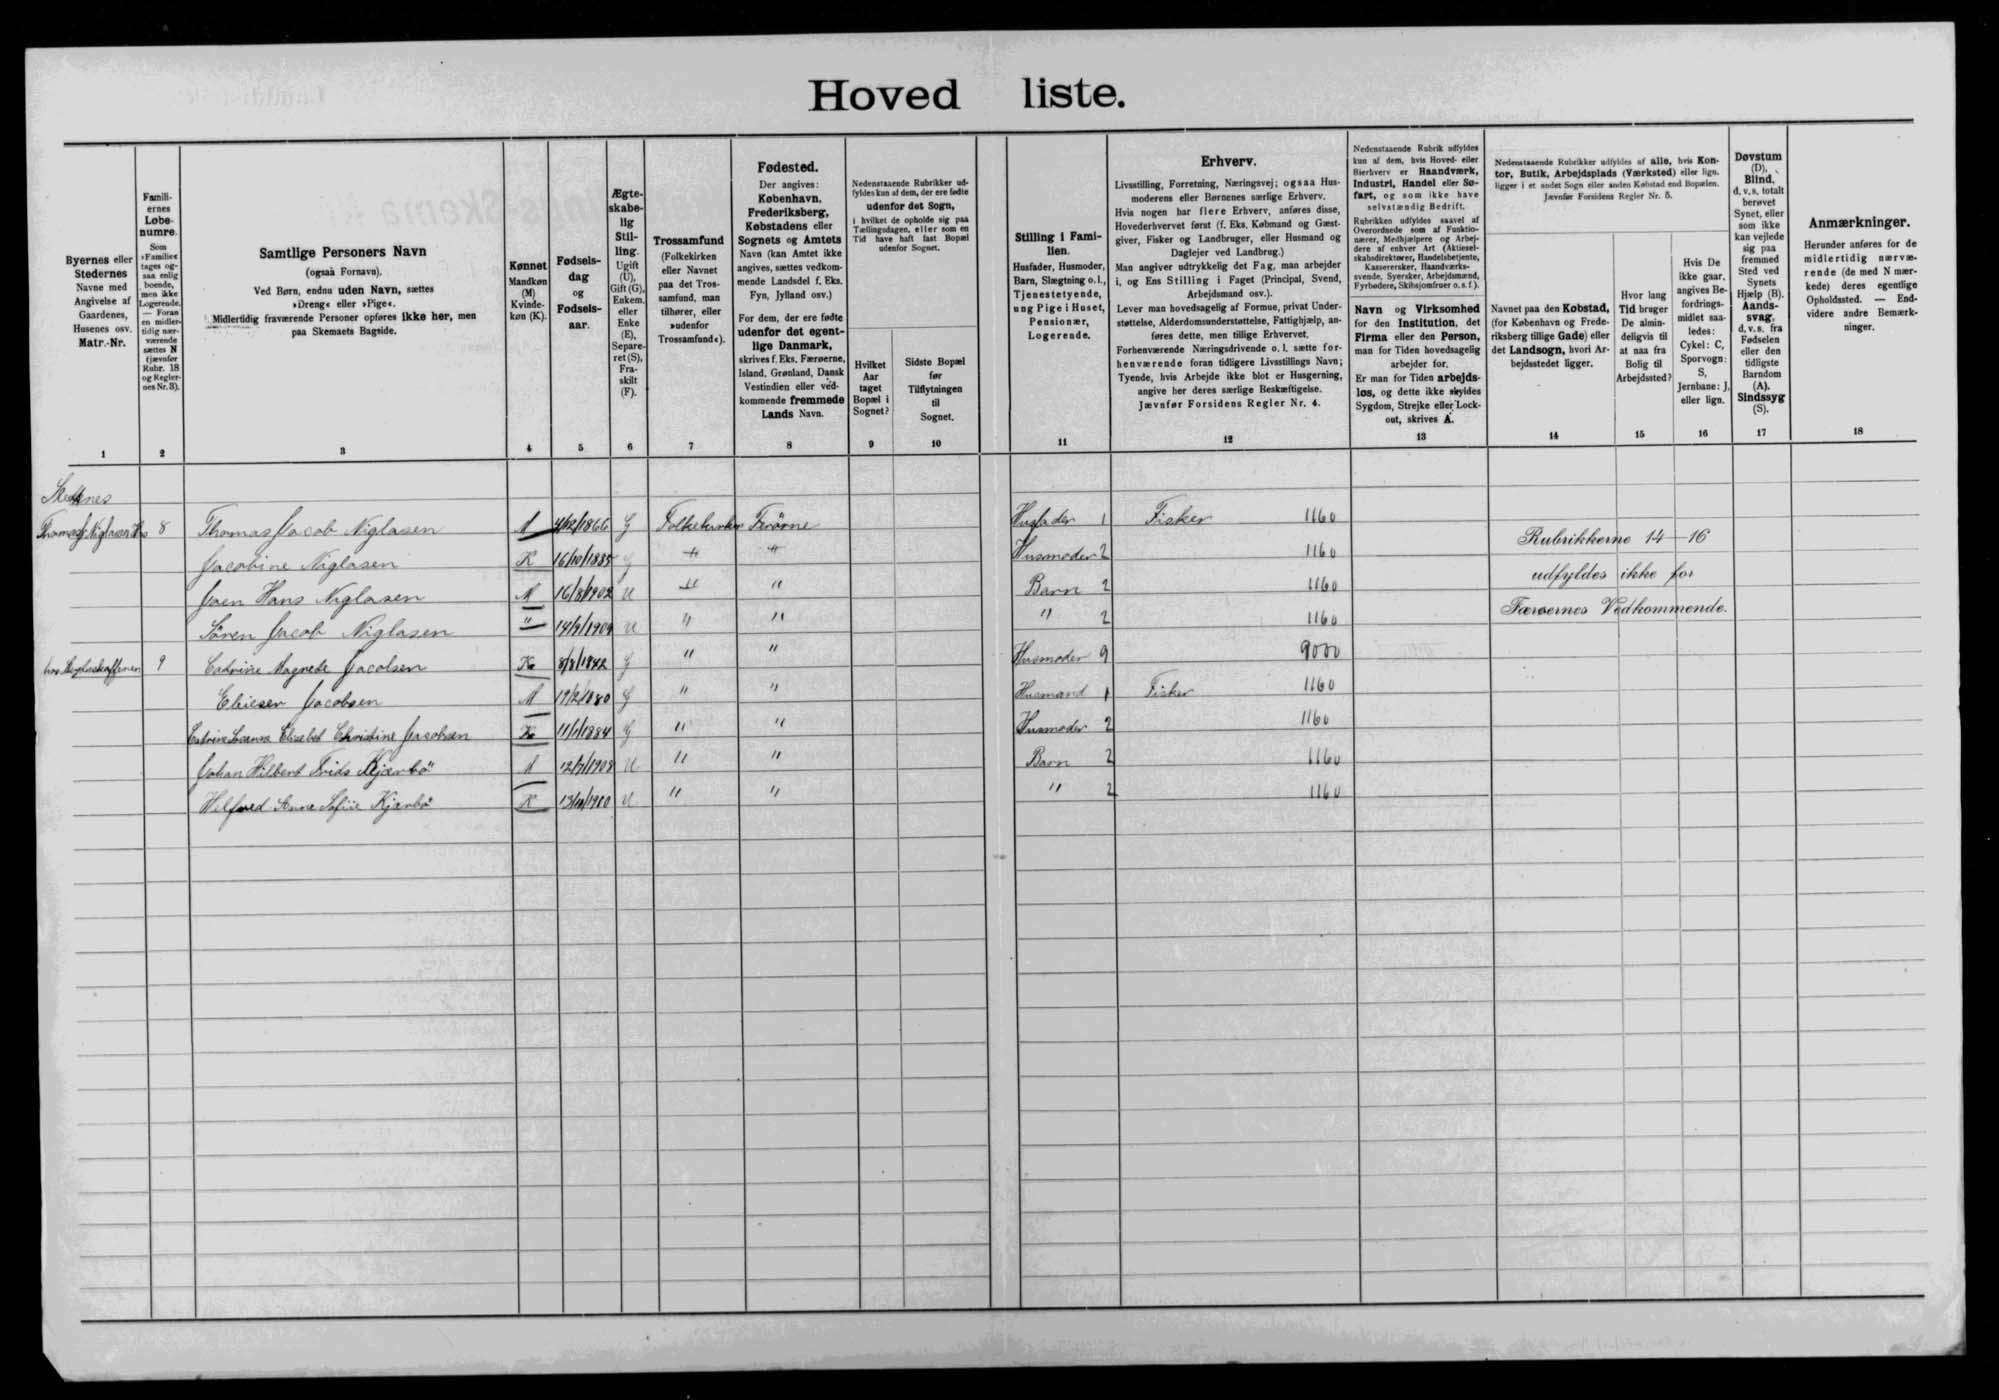 Hoved liste.
Byernes eller
Stedernes
Navne med
Angivelse af
Gaardenes,
Husenes osv.
Matr.-Nr.
1
Famili-
ernes
Løbe-
numre.
Som
»Familie«
tages og-
saa enlig
boende,
men ikke
Logerende.
— Foran
en midler-
tidig nær-
værende
sættes N
(jævnfør
Rubr. 18
og Regler-
nes Nr. 3).
2
Samtlige Personers Navn
(ogsaa Fornavn).
Ved Børn, endnu uden Navn, sættes
»Dreng« eller »Pige«.
Midlertidig fraværende Personer opføres ikke her, men
paa Skemaets Bagside.
3
Kønnet
Mandkøn
(M)
Kvinde-
køn (K).
4
Fødsels-
dag
og
Fødsels-
aar.
5
Ægte-
skabe-
lig
Stil-
ling.
Ugift
(U),
Gift (G),
Enkem.
eller
Enke
(E),
Separe-
ret (S),
Fra-
skilt
(F).
6
Trossamfund
(Folkekirken
eller Navnet
paa det Tros-
samfund, man
tilhører, eller
»udenfor
Trossamfund«).
7
Fødested.
Der angives:
København,
Frederiksberg,
Købstadens eller
Sognets og Amtets
Navn (kan Amtet ikke
angives, sættes vedkom-
mende Landsdel f. Eks.
Fyn, Jylland osv.)
For dem, der ere fødte
udenfor det egent-
lige Danmark,
skrives f. Eks. Færøerne,
Island, Grønland, Dansk
Vestindien eller ved-
kommende fremmede
Lands Navn.
8
Nedenstaaende Rubrikker ud-
fyldes kun af dem, der ere fødte
udenfor det Sogn,
i hvilket de opholde sig paa
Tællingsdagen, eller som en
Tid have haft fast Bopæl
udenfor Sognet.
Hvilket
Aar
taget
Bopæl i
Sognet?
9
Sidste Bopæl
før
Tilflytningen
til
Sognet.
10
Stilling i Fami-
lien.
Husfader, Husmoder,
Barn, Slægtning o.l.,
Tjenestetyende,
ung Pige i Huset,
Pensionær,
Logerende.
11
Erhverv.
Livsstilling, Forretning, Næringsvej; ogsaa Hus-
moderens eller Børnenes særlige Erhverv.
Hvis nogen har flere Erhverv, anføres disse,
Hovederhvervet først (f. Eks. Købmand og Gæst-
giver, Fisker og Landbruger, eller Husmand og
Daglejer ved Landbrug.)
Man angiver udtrykkelig det Fag, man arbejder
i, og Ens Stilling i Faget (Principal, Svend,
Arbejdsmand osv.).
Lever man hovedsagelig af Formue, privat Under-
støttelse, Alderdomsunderstøttelse, Fattighjælp, an-
føres dette, men tillige Erhvervet.
Forhenværende Næringsdrivende o. l. sætte for-
henværende foran tidligere Livsstillings Navn;
Tyende, hvis Arbejde ikke blot er Husgerning,
angive her deres særlige Beskæftigelse.
Jævnfør Forsidens Regler Nr. 4.
12
Nedenstaaende Rubrik udfyldes
kun af dem, hvis Hoved- eller
Bierhverv er Haandværk,
Industri, Handel eller Sø-
fart, og som ikke have
selvstændig Bedrift.
Rubrikken udfyldes saavel af
Overordnede som af Funktio-
nærer, Medhjælpere og Arbej-
dere af enhver Art (Aktiesel-
skabsdirektører, Handelsbetjente,
Kassererske, Haandværks-
svende, Syersker, Arbejdsmænd,
Fyrbødere, Skibsjomfruer o. s. f.).
Navn og Virksomhed
for den Institution, det
Firma eller den Person,
man for Tiden hovedsagelig
arbejder for.
Er man for Tiden arbejds-
løs, og dette ikke skyldes
Sygdom, Strejke eller Lock-
out, skrives A.
13
Nedenstaaende Rubrikker udfyldes af alle, hvis Kon-
tor, Butik, Arbejdsplads (Værksted) eller lign.
ligger i et andet Sogn eller anden Købstad end Bopælen.
Jævnfør Forsidens Regler Nr. 5.
Navnet paa den Købstad,
(for København og Frede-
riksberg tillige Gade) eller
det Landsogn, hvori Ar-
bejdsstedet ligger.
14
Hvor lang
Tid bruger
De almin-
deligvis til
at naa fra
Bolig til
Arbejdssted?
15
Hvis De
ikke gaar,
angives Be-
fordrings-
midlet saa-
ledes:
Cykel: C,
Sporvogn:
S,
Jernbane: J,
eller lign.
16
Døvstum
(D),
Blind,
d. v. s. totalt
berøvet
Synet, eller
som ikke
kan vejlede
sig paa
fremmed
Sted ved
Synets
Hjælp (B).
Aands-
svag,
d. v. s. fra
Fødselen
eller den
tidligste
Barndom
(A).
Sindssyg
(S).
17
Anmærkninger.
Herunder anføres for de
midlertidig nærvæ-
rende (de med N mær-
kede) deres egentlige
Opholdssted. — End-
videre andre Bemærk-
ninger.
18
8 Thomas Jacob Niglasen M 4/12/1866 G Folkekirken Færøerne Husfader 1 Fisker 1160
Jacobine Niglasen K 16/10/1885 G " " Husmoder 2 1160
Joen Hans Niglasen M 16/8/1902 U " " Barn 2 1160
Sören Jacob Niglasen " 14/9/1909 U " " " 2 1160
Rubrikkerne 14-16
udfyldes ikke for
Færøernes Vedkommende.
9 Cathrine Magrete Jacobsen K 8/8/1842 G " " Husmoder 9 9000
Elieser Jacobsen M 19/2/1880 G " " Husmand 1 Fisker 1160
Elisabet Christine Jacobsen K 11/1/1884 G " " Husmoder 2 1160
Johan Hilbert Frids Kjærbö M 12/7/1908 U " " Barn 2 1160
Anna Sofie Kjærbö K U " " " 2 1160